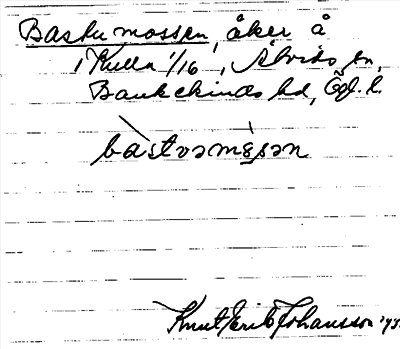 Bastumossen, åker å
1 Kulla 1/16, Älvids sn,
Bankekinds hd, Ögl. l.
bàstvəmòsən
Knut Erik Johansson